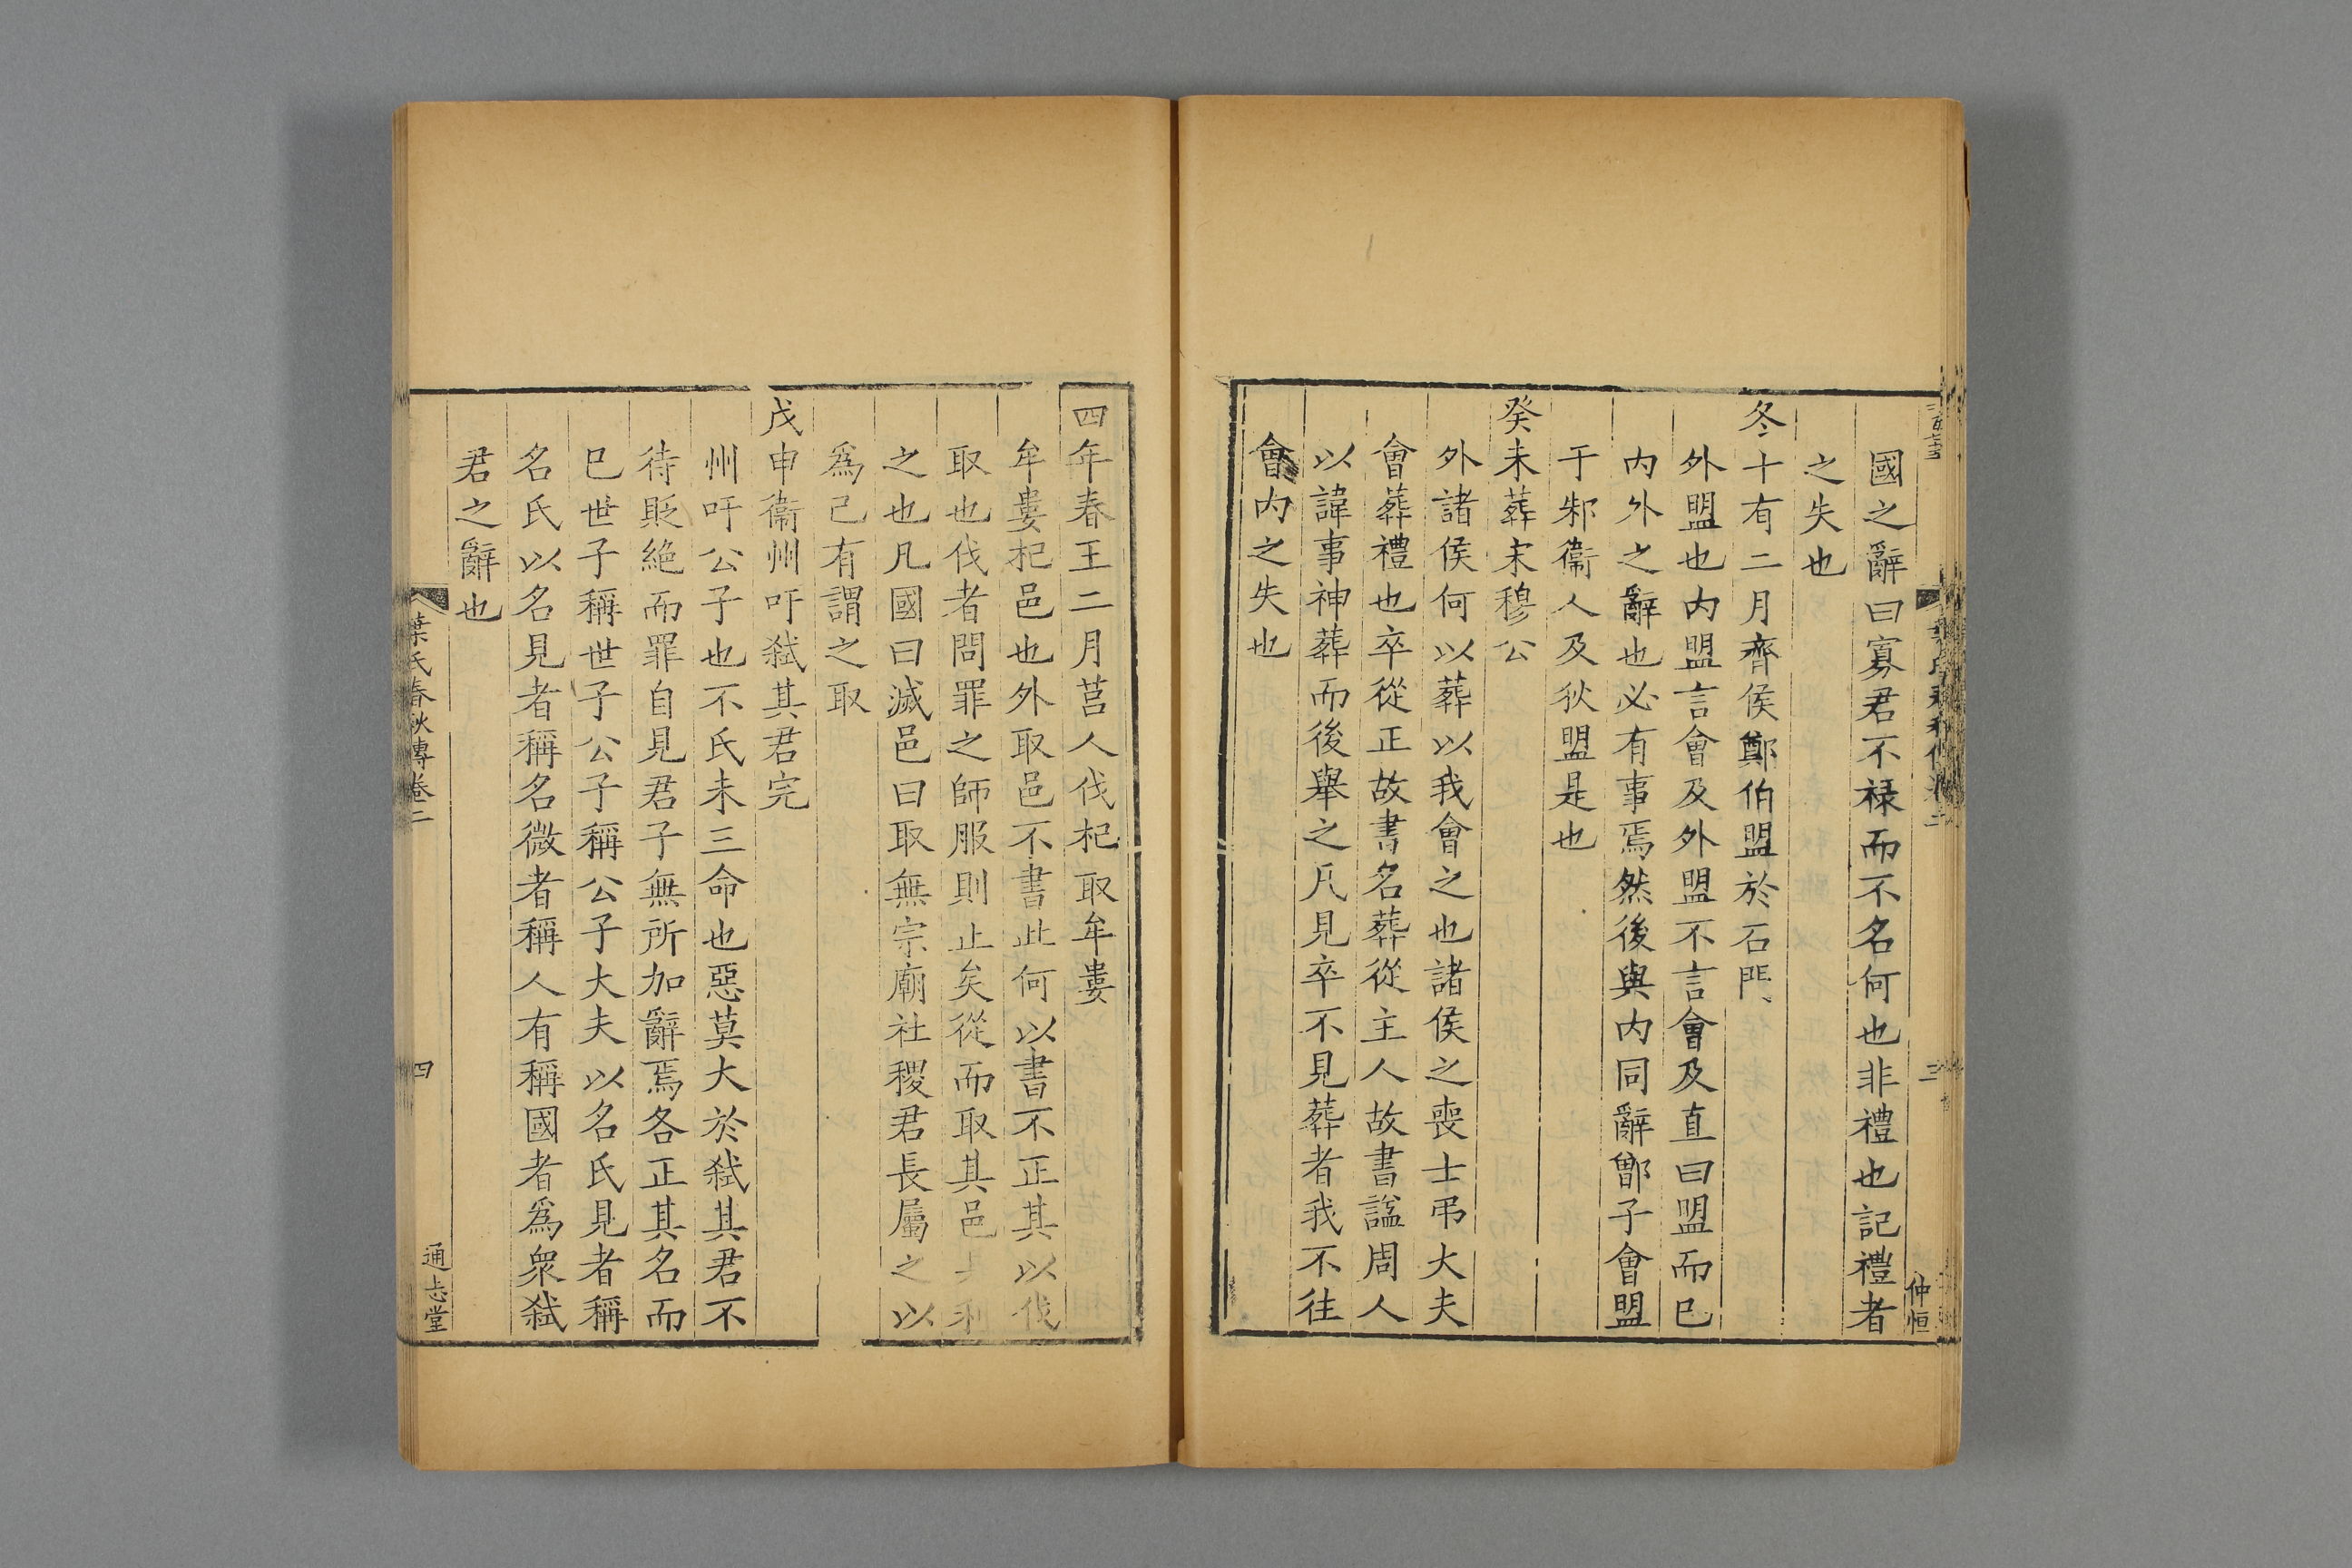 國之辭曰寡君不禄而不名何也非禮也記禮者
之失也
冬十有二月齊侯鄭伯盟於石門
外盟也内盟言會及外盟不言會及直曰盟而巳
内外之辭也必有事焉然後與内同辭鄫子會盟
于邾衞人及狄盟是也
癸未葬宋穆公
外諸侯何以葬以我會之也諸侯之喪士弔大夫
會葬禮也卒從正故書名葬從主人故書諡周人
以諱事神葬而後舉之凡見卒不見葬者我不往
會内之失也
仲恒
四年春王二月莒人伐杞取牟婁
牟婁杞邑也外取邑不書此何以書不正其以伐
取也伐者問罪之師服則止矣從而取其邑利
之也凡國曰滅邑曰取無宗廟社稷君長屬之以
爲己有謂之取
戊申衞州吁弑其君完
州吁公子也不氏未三命也惡莫大於弑其君不
待貶絶而罪自見君子無所加辭焉各正其名而
巳世子稱世子公子稱公子大夫以名氏見者稱
名氏以名見者稱名微者稱人有稱國者爲衆弑
君之辭也
葉氏春秋傳卷二
四
通志堂